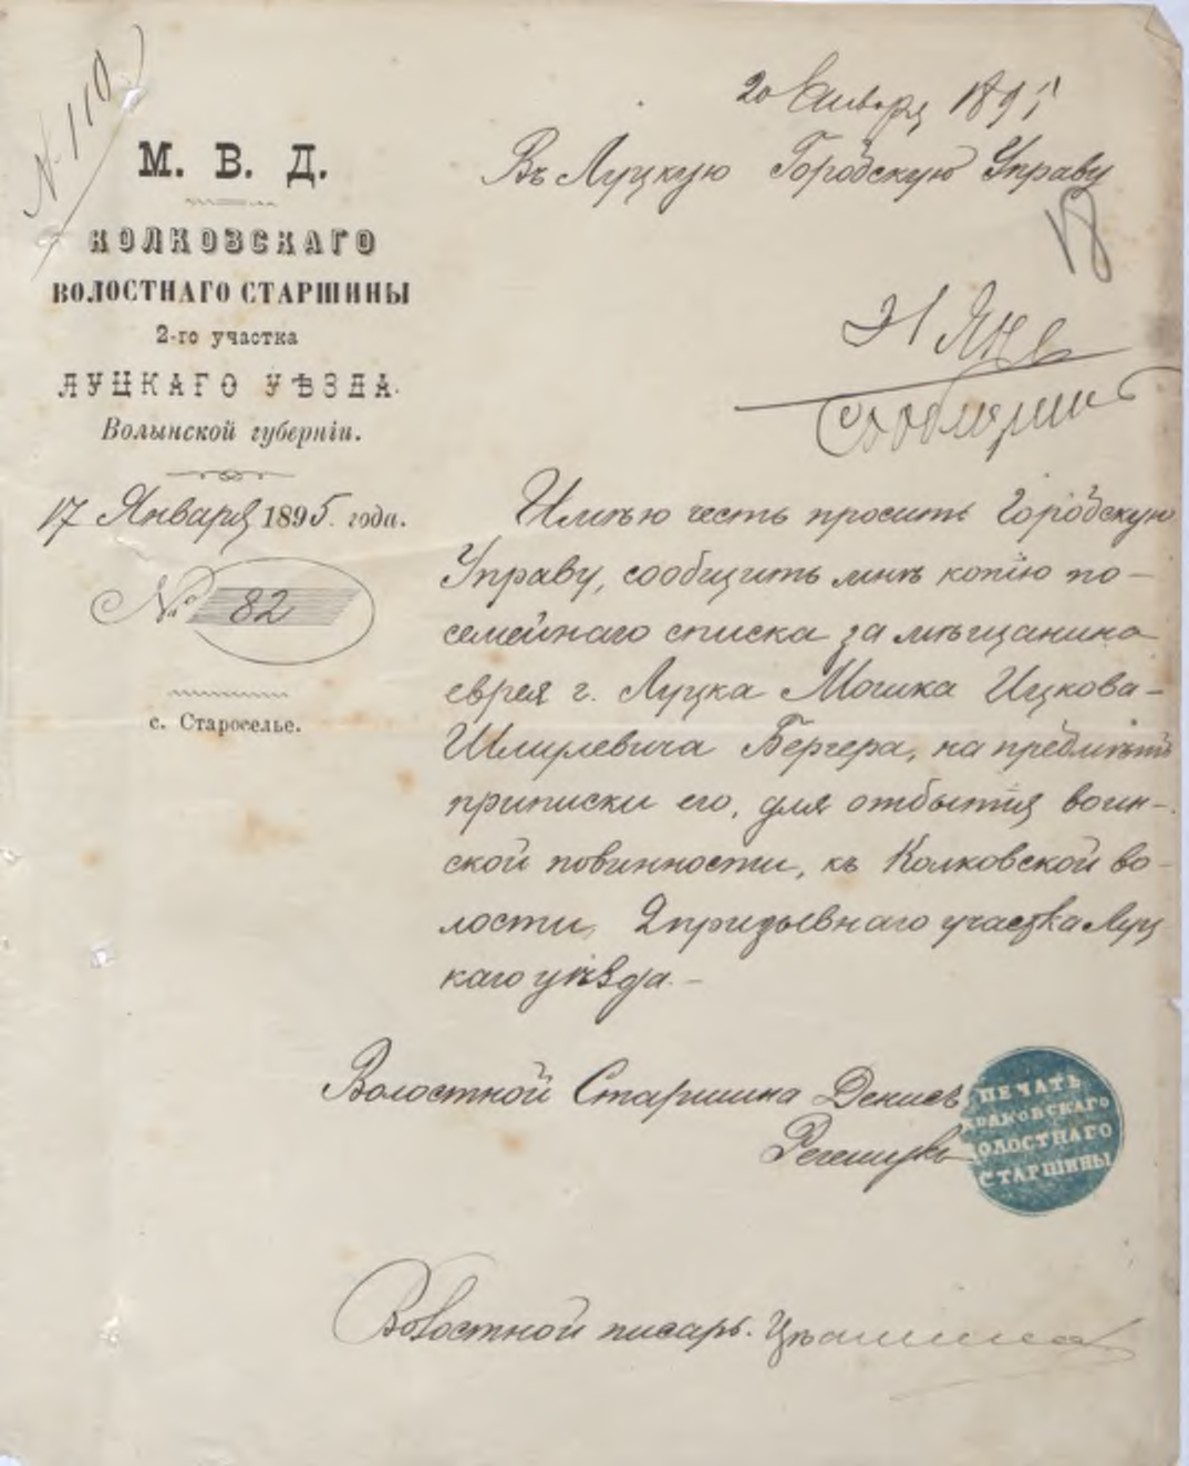 № 110
20 Января 1895
Въ Луцкую Городскую Управу
18
М. В. Д.
КОЛКОВСКАГО
ВОЛОСТНАГО СТАРШИНЫ
2-го участка
ЛУЦКАГО УѢЗДА.
Волынской губерніи.
17 Января 1895. года.
№ 82
с. Староселье.
Имѣю честь просить Городскую
Управу, сообщить мнѣ копію по-
семейнаго списка за мѣщанина
еврея г. Луцка Мошка Ицкова-
Шмулевича Бергера, на предметъ
приписки его, для отбытія воин-
ской повинности, къ Колковской во-
лости, 2 призывнаго участка Луц
каго уѣзда. —
Волостной Старшина Денисъ
ПЕЧАТЬ
КОЛКОВСКАГО
ВОЛОСТНАГО
СТАРШИНЫ
Волостной писарь.